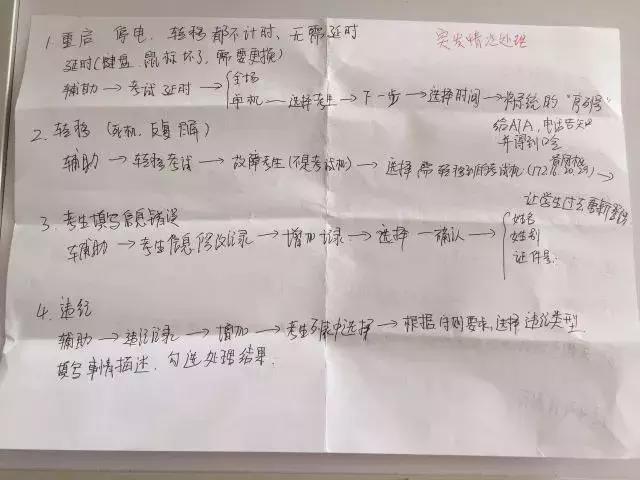 突发情况处理
1. 重启 停电、转移都不计时、无需延时
延时(键盘、鼠标坏了，需要更换)
辅助→考试延时→{全场
单机→选择考生→下一步→选择时间→将系统的“序列号”
给ATA，电话告知
并得到口令
2. 转移(死机、反复黑屏)
辅助→转移考试→故障考生(不是考试机)→选择需转移到的考试机(172.16.20.29)→
让学生过去重新登陆
3. 考生填写信息错误
辅助→考生信息修改记录→增加记录→选择→确认→{姓名
性别
证件号
4. 违纪
辅助→违纪记录→增加→考生列表中选择→根据守则要求，选择违纪类型
填写事情描述、勾选处理结果.